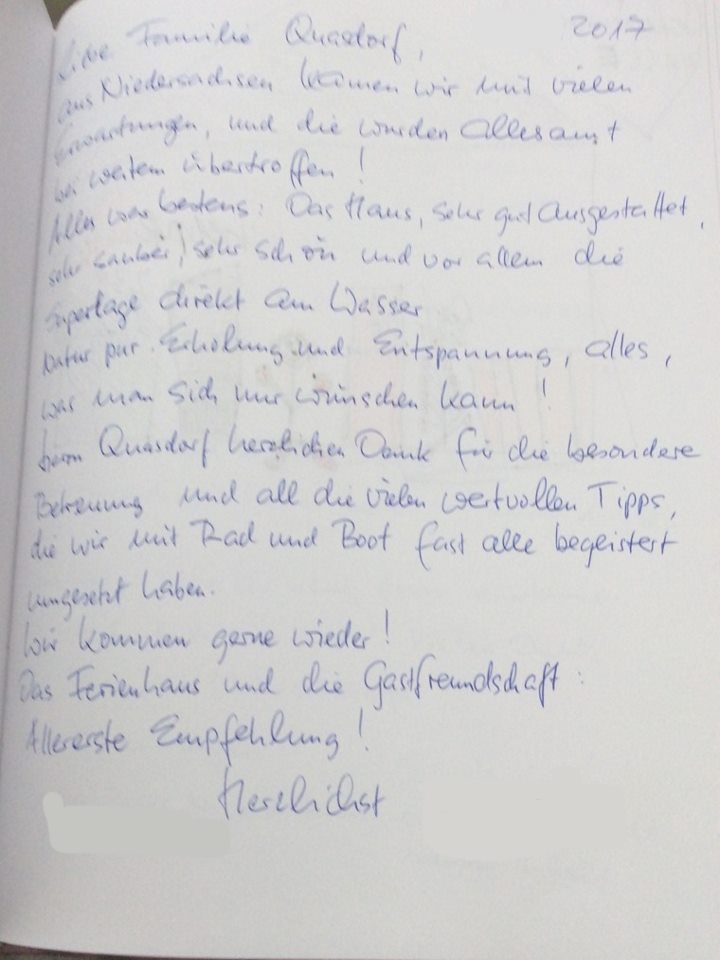 2017
Liebe Familie Quasdorf,
aus Niedersachsen kamen wir mit vielen
Erwartungen, und die wurden allesamt
bei weitem übertroffen!
Alles war bestens: Das Haus, sehr gut ausgestattet,
sehr sauber, sehr schön und vor allem die
Superlage direkt am Wasser
Natur pur. Erholung und Entspannung, alles,
was man sich nur wünschen kann!
Herrn Quasdorf herzlichen Dank für die besondere
Betreuung und all die vielen wertvollen Tipps,
die wir mit Rad und Boot fast alle begeistert
umgesetzt haben.
Wir kommen gerne wieder!
Das Ferienhaus und die Gastfreundschaft:
Allererste Empfehlung!
Herzlichst